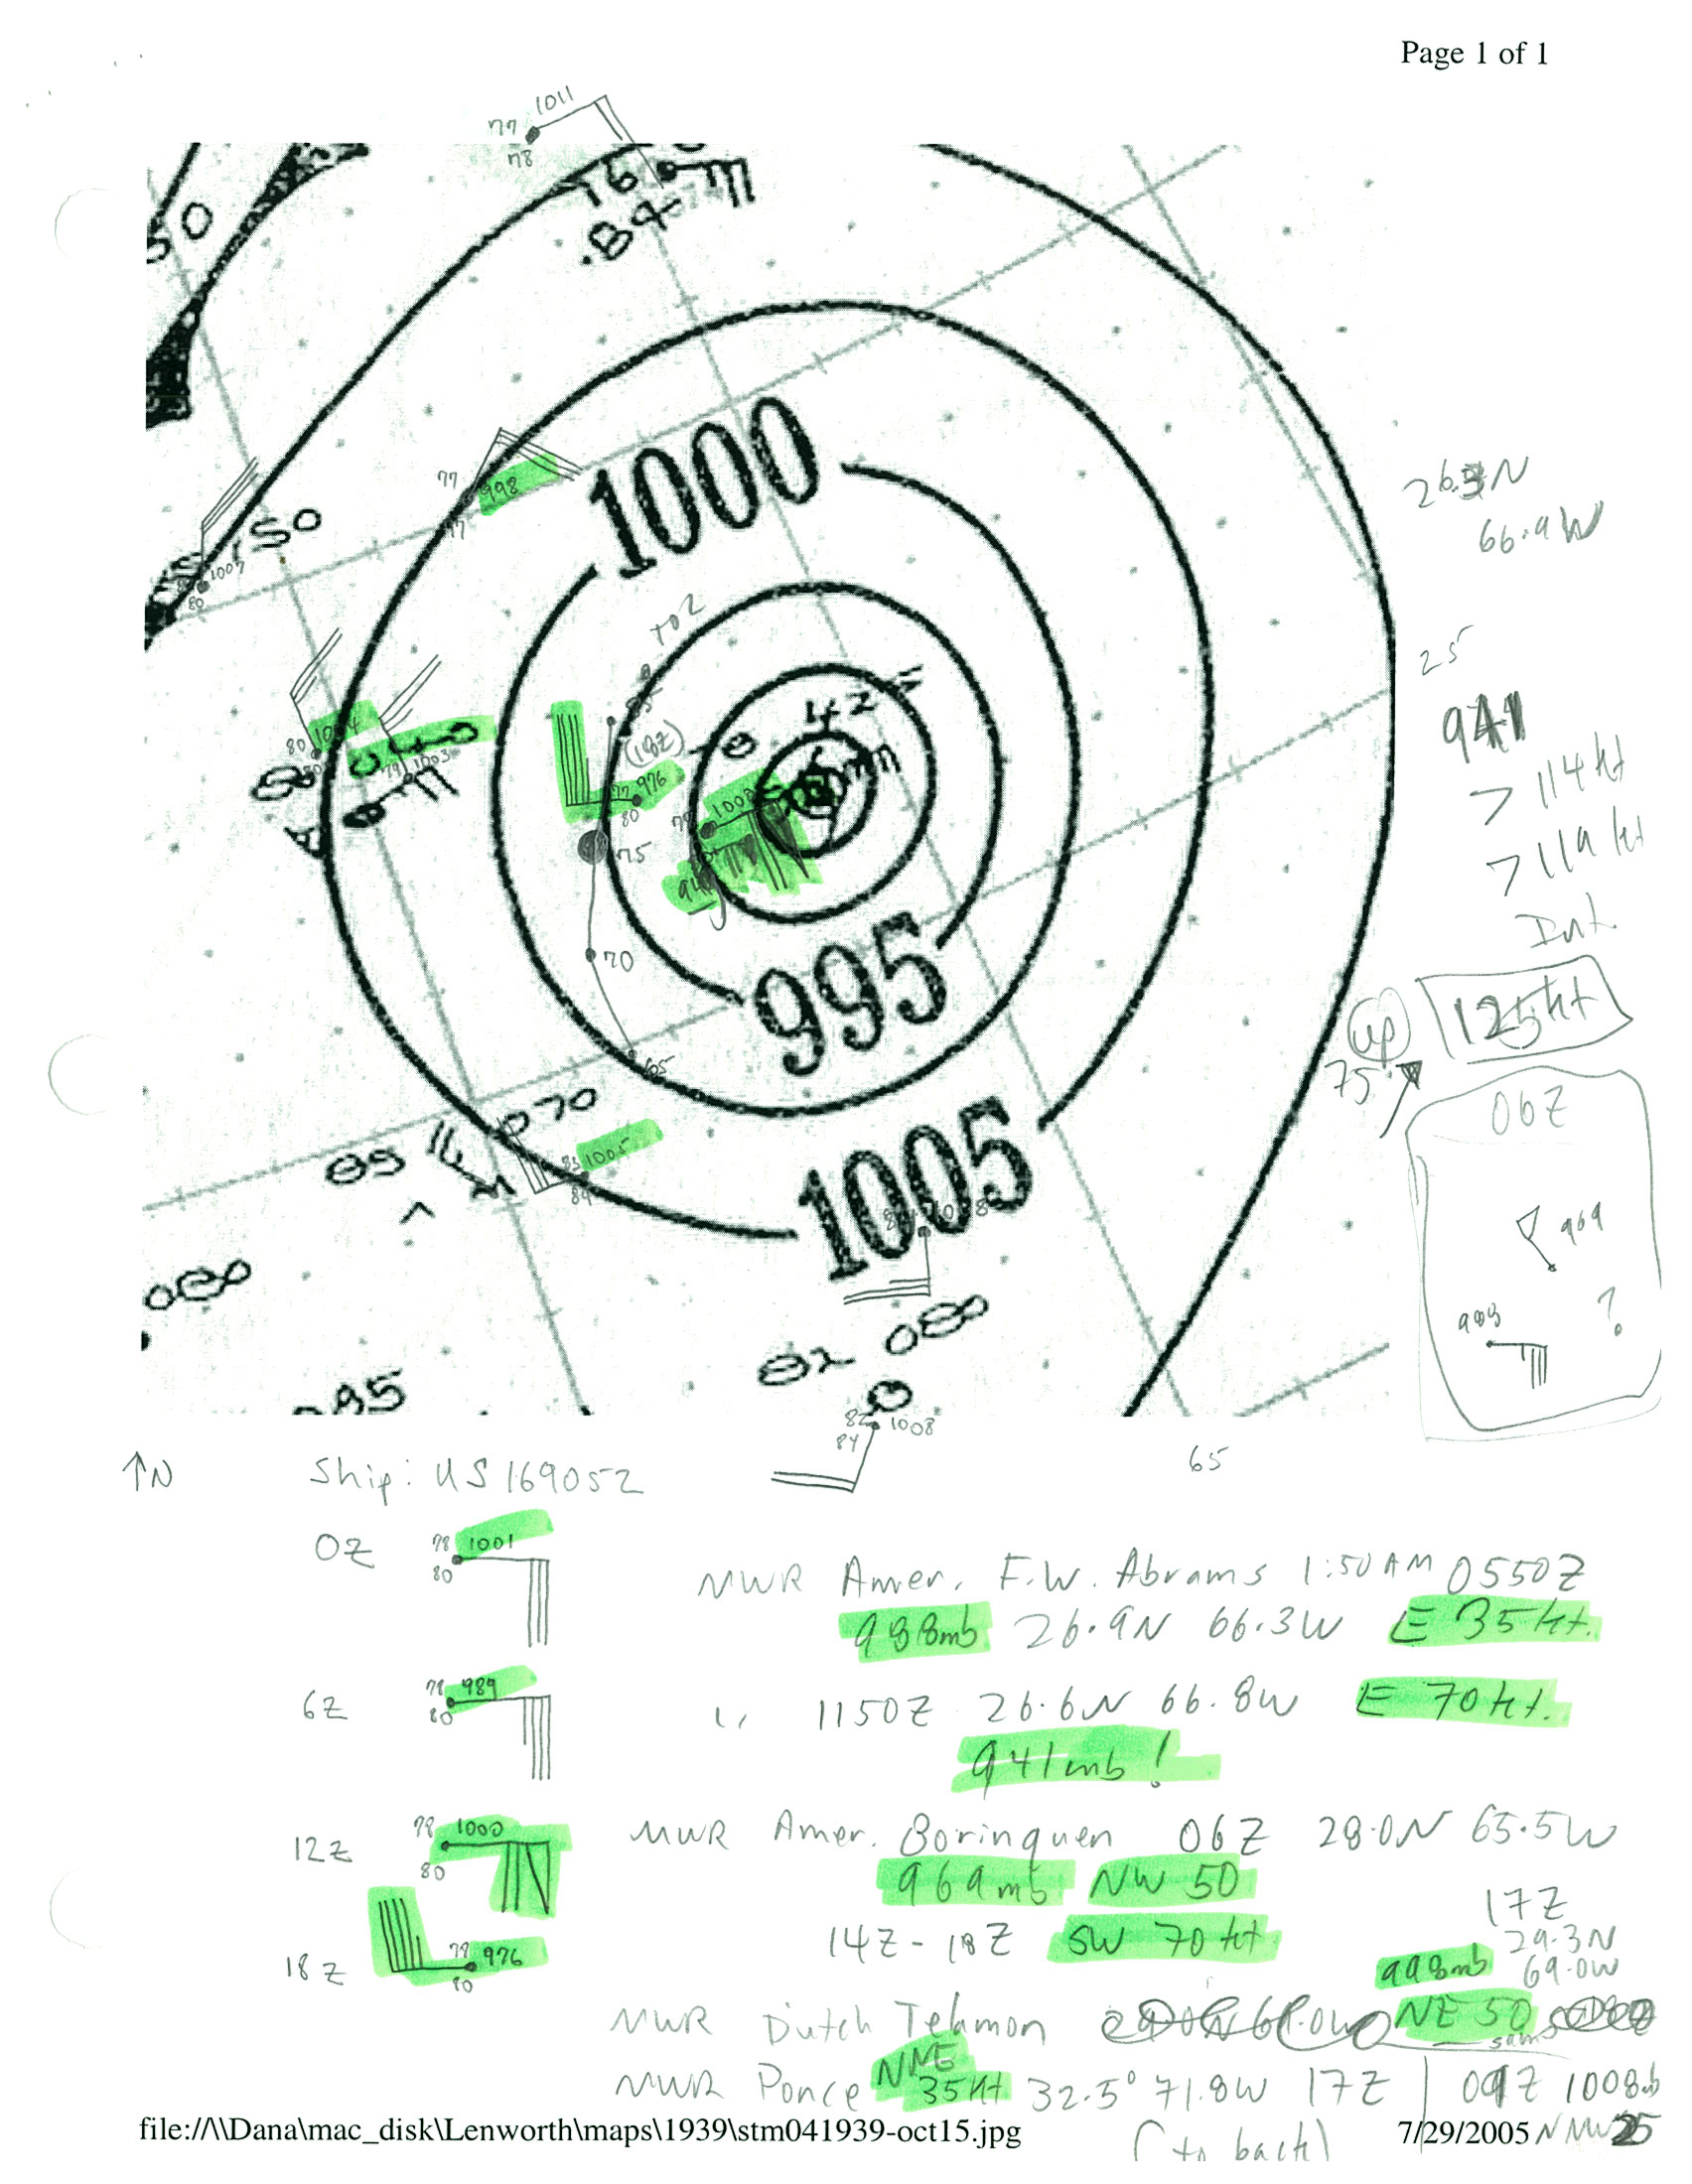 Page 1 of 1
77 1011
78
76
84
50
1000
77 998
77
150
1007
80
26.3N
66.9W
T02
25
941
> 114 kt
> 119 kt
Int.
(18Z)
80 1004
79 1003
77 976
80
1003
75
70
65
995
up 125kt
75
06Z
969
988
?
070
83 1005
84
1005
080
82 080
085
82 1008
84
65
↑N Ship: US 169052
0Z 78 1001
80
MWR Amer. F.W. Abrams 1:50 AM 0550Z
988mb 26.9N 66.3W E 35kt.
6Z 78 989
80
" 1150Z 26.6N 66.8W E 70kt.
941mb!
12Z 78 1000
80
MWR Amer. Borinquen 06Z 28.0N 65.5W
969mb NW 50
18Z 78 976
80
14Z-18Z SW 70kt
17Z
29.3N
998mb 69.0W
MWR Dutch Telamon NE 50
MWR Ponce NNE 35kt 32.5° 71.8W 17Z 09Z 1008mb
NNW 25
(to back)
file://\\Dana\mac_disk\Lenworth\maps\1939\stm041939-oct15.jpg 7/29/2005